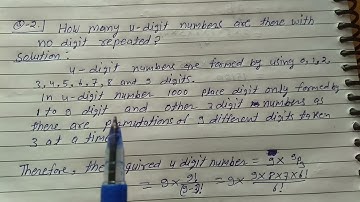 Q-2.] How many 4-digit numbers are there with
no digit repeated?
Solution:
4-digit numbers are formed by using 0,1,2,
3,4,5,6,7,8 and 9 digits.
In 4-digit number 1000 place digit only formed by
1 to 9 digit and other 3 digit numbers as
there are permutations of 9 different digits taken
3 at a time
Therefore, the required 4 digit number = 9 × ⁹P₃
= 9 × 9!/(9-3)! = 9 × 9×8×7×6!/6!